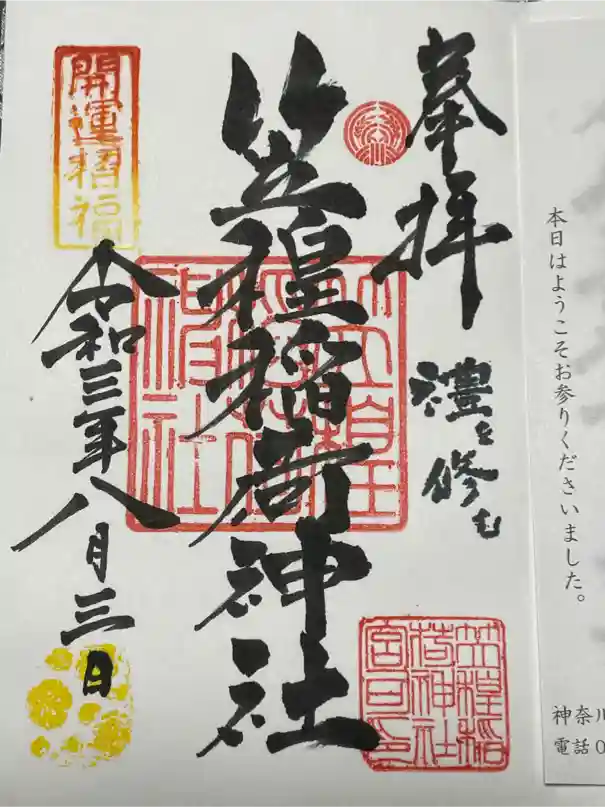 奉拝
禮を修む
笠䅣稲荷神社
開運招福
令和三年八月三日
笠䅣
稲荷
神社
笠䅣稲
荷神社
宮司印
本日はようこそお参りくださいました。
神奈川
電話0